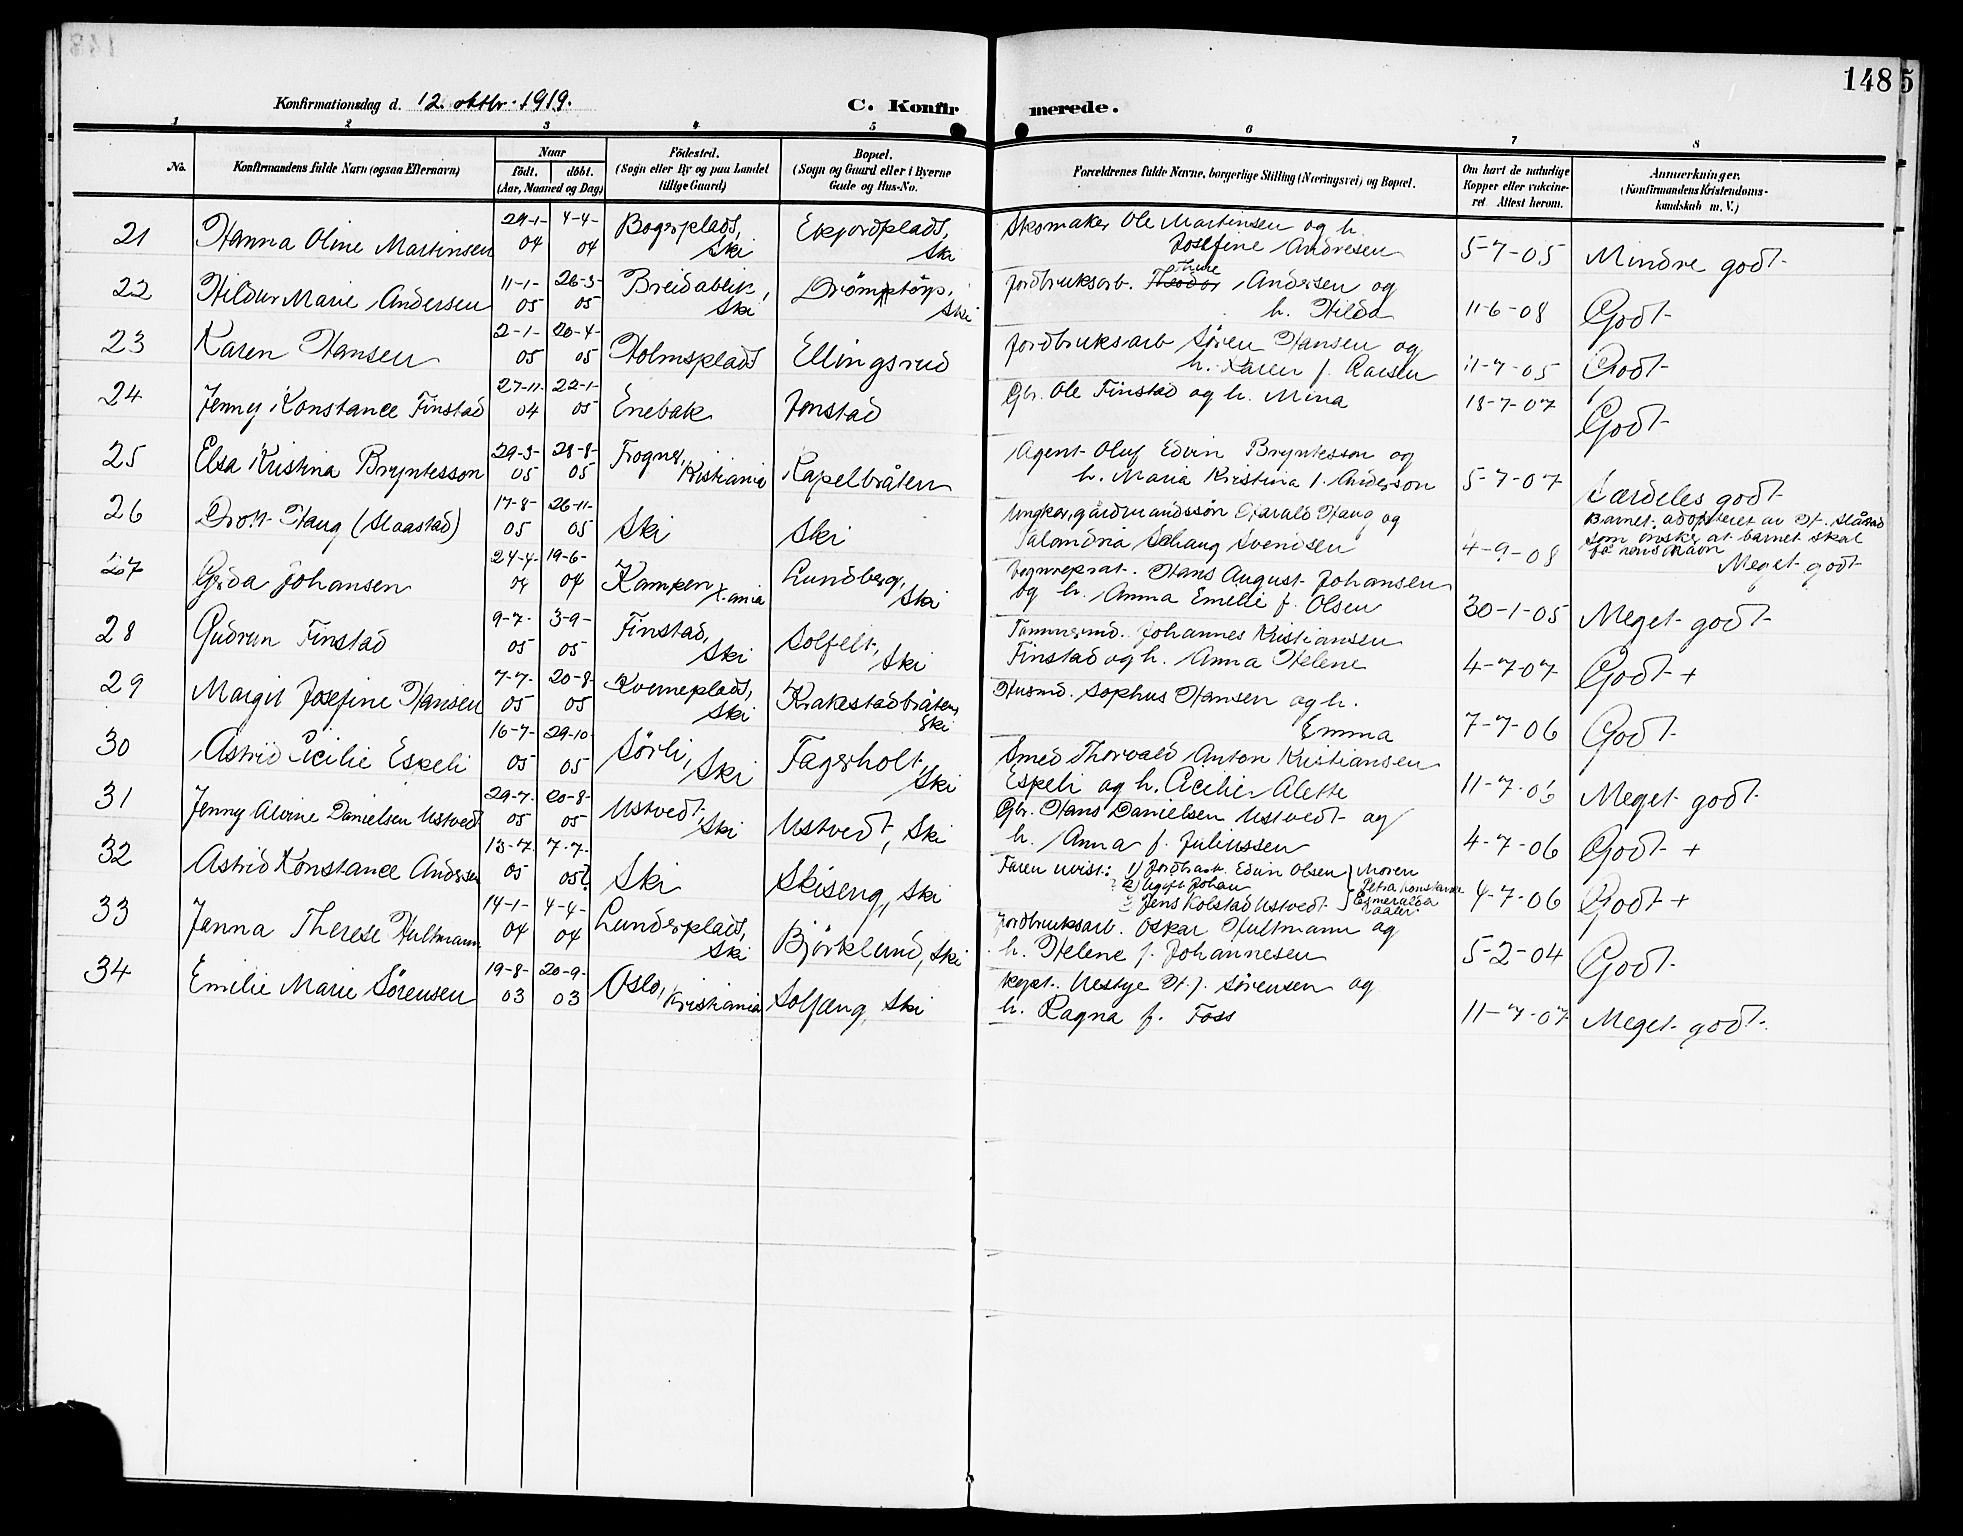 148 5
Konfirmationsdag d. 12. oktbr. 1919.
C. Konfir merede.
1 2 3 4 5 6 7 8
No.
Konfirmandens fulde Navn (ogsaa Efternavn)
Naar
født. døbt.
(Aar, Maaned og Dag)
Fødested.
(Sogn eller By og paa Landet
tillige Gaard)
Bopæl.
(Sogn og Gaard eller i Byerne
Gade og Hus-No.
Forældrenes fulde Navne, borgerlige Stilling (Næringsvei) og Bopæl.
Om havt de naturlige
Kopper eller vakcine-
ret. Attest herom.
Anmærkninger.
(Konfirmandens Kristendoms-
kundskab m. V.)
21 Hanna Oline Martinsen 24-1-04 4-4-04 Bogerplads, Ski Ekjordplads, Ski
Skomaker Ole Martinsen og h.
Josefine Andresen 5-7-05 Mindre godt
22 Hildur Marie Andersen 11-1-05 26-3-05 Breidablik, Ski Drömtorp, Ski
Jordbruksarb. Theodor Thure Andersen og
h. Hilda 11-6-08 Godt
23 Karen Hansen 2-1-05 20-4-05 Holmsplads Ellingsrud
Jordbruksarb Sören Hansen og
h. Karen f. 11-7-05 Godt
24 Jenny Konstance Finstad 27-11-04 22-1-05 Enebak Jonstad
Gbr. Ole Finstad og h. Mina 18-7-07 Godt
25 Elsa Kristina Bryntesson 29-3-05 28-8-05 Frogner, Kristiania Kapelbråten
Agent Oluf Edvin Bryntesson og
h. Maria Kristina f. Anderson 5-7-07 Særdeles godt
26 Drott Haug (Slaastad) 17-8-05 26-11-05 Ski Ski
Ungkar, gårdmandssön Harald Haug og
Svendsen 4-9-08
Barnet adopteret av H. Slåstad
som önsker at barnet skal
få hans navn
Meget godt
27 Gerda Johansen 24-4-04 19-6-04 Kampen, X.ania Lundberg, Ski
Vognreprat. Hans August Johansen
og h. Anna Emelie f. Olsen 30-1-05 Meget godt
28 Gudrun Finstad 9-7-05 3-9-05 Finstad, Ski Solfelt, Ski
Tömmermd. Johannes Kristiansen
Finstad og h. Anna Helene 4-7-07 Godt +
29 Margit Josefine Hansen 7-7-05 20-8-05 Kverneplads, Ski Krakestadbråten, Ski
Husmd. Sophus Hansen og h.
Emma 7-7-06 Godt
30 Astrid Cicilie Espeli 16-7-05 29-10-05 Sörli, Ski Fagerholt, Ski
Smed Thorvald Anton Kristiansen
Espeli og h. Cecilie Alette 11-7-06 Meget godt
31 Jenny Alvine Danielsen Ustvedt 29-7-05 20-8-05 Ustvedt, Ski Ustvedt, Ski
Gbr. Hans Danielsen Ustvedt og
h. Anna f. Juliussen 4-7-06 Godt +
32 Astrid Konstance Andersen 13-7-05 7-7-05? Ski Skiseng, Ski
Faren uvist: 1) Jordbrarb. Edvin Olsen } Moren
? 2) Ugift Johan Petra Konstance
3 Jens Kolstad Ustvedt Esmeralda
4-7-06 Godt +
33 Janna Therese Hultmann 14-1-04 4-4-04 Lunderplads, Ski Björklund, Ski
Jordbruksarb. Oskar Hultmann og
h. Helene f. Johannesen 5-2-04 Godt
34 Emilie Marie Sörensen 19-8-03 20-9-03 Oslo, Kristiania Solfæng, Ski
Kapt. H. J. Sörensen og
h. Ragna f. Foss 11-7-07 Meget godt